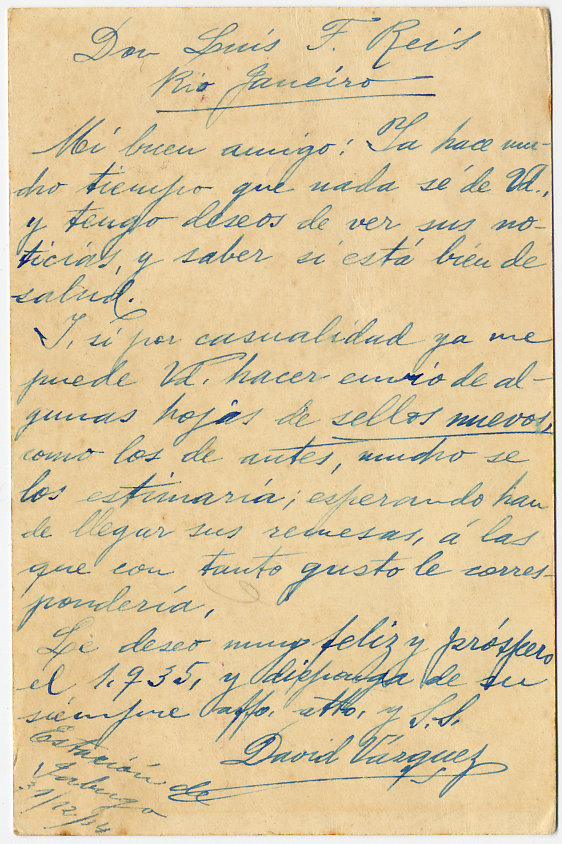 Don Luis F. Reis
Rio Janeiro
Mi buen amigo: Ya hace mu-
cho tiempo que nada sé de Vd.,
y tengo deseos de ver sus no-
ticias, y saber si está bien de
salud.
Y, si por casualidad ya me
puede Vd. hacer envio de al-
gunas hojas de sellos nuevos,
como los de antes, mucho se
los estimaría; esperando han
de llegar sus remesas, á las
que con tanto gusto le corres-
pondería.
Le deseo muy feliz y próspero
el 1.935, y disponga de su
siempre affo. atto. y S.S.
David Vázquez
Estación de
Jabugo
21/12/34